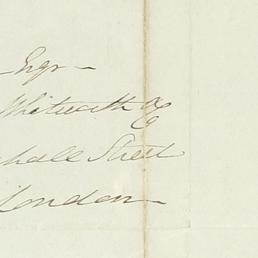 Esqr
Whitworth &C
hall Street
London